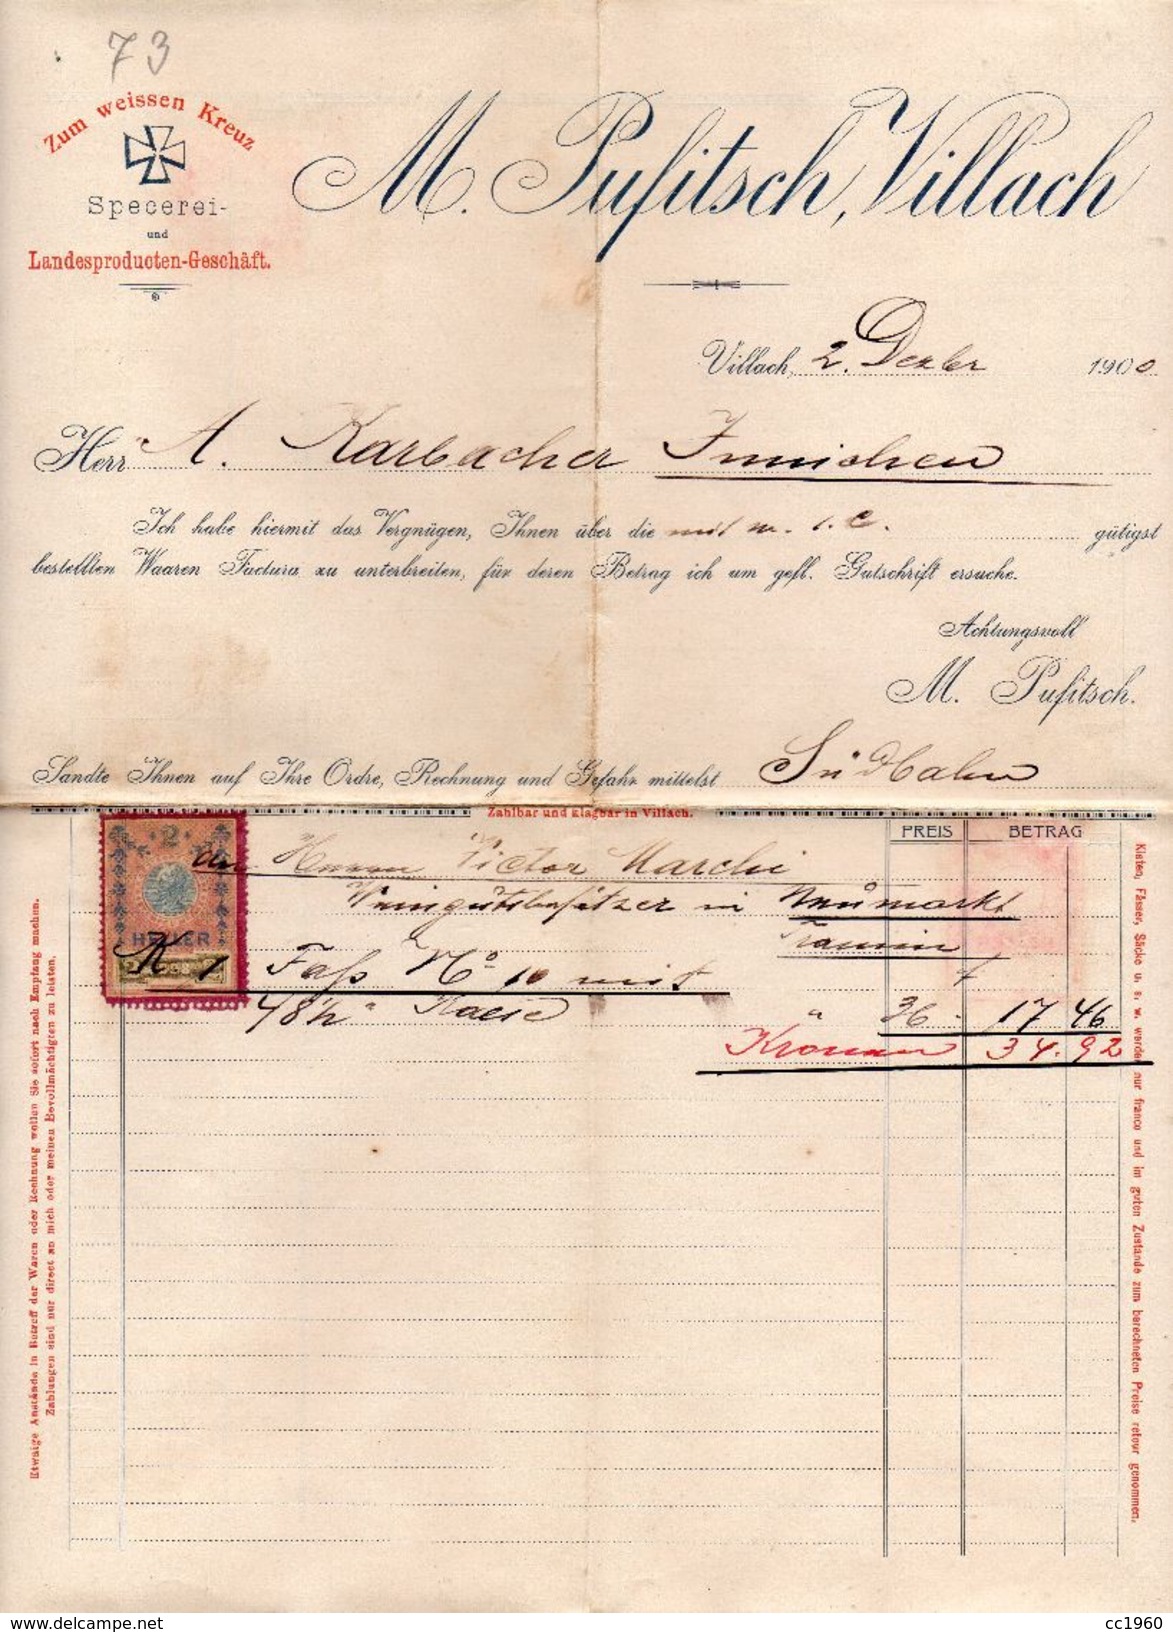 73
Zum weissen Kreuz
Specerei-
und
Landesproducten-Geschäft.
M. Pufitsch, Villach
Villach, 2. Dezbr 1900
Herr A. Karbacher Innichen
Ich habe hiermit das Vergnügen, Ihnen über die mit m. l. C. gütigst
bestellten Waaren Factura zu unterbreiten, für deren Betrag ich um gefl. Gutschrift ersuche.
Achtungsvoll
M. Pufitsch.
Sandte Ihnen auf Ihre Ordre, Rechnung und Gefahr mittelst Südbahn
Zahlbar und klagbar in Villach.
PREIS BETRAG
2
HELLER
an Herrn Victor Marchi
Weingutsbesitzer in Neumarkt
Tramin
K 1 Faß No 10 mit f
48½ " " 36 - 17 46
Kronen 34.92
Etwaige Anstände in Betreff der Waren oder Rechnung wollen Sie sofort nach Empfang machen.
Zahlungen sind nur direct an mich oder meinen Bevollmächtigten zu leisten.
Kisten, Fässer, Säcke u. s. w. werden nur franco und im guten Zustande zum berechneten Preise retour genommen.
www.delcampe.net
cc1960